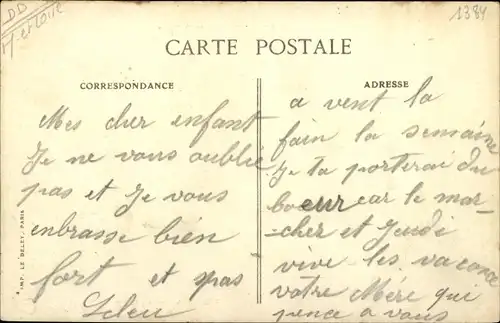 DD
M et Loire
1384
CARTE POSTALE
CORRESPONDANCE
ADRESSE
Mes cher enfant
Je ne vous oublié
pas et Je vous
enbrasse bien
fort et
a vent la
fain la semaine
Je ta porterai du
boeur car le mar-
-cher et Jeudi
vive les vacance
votre Mére qui
pence a vous
IMP. LE DELEY, PARIS